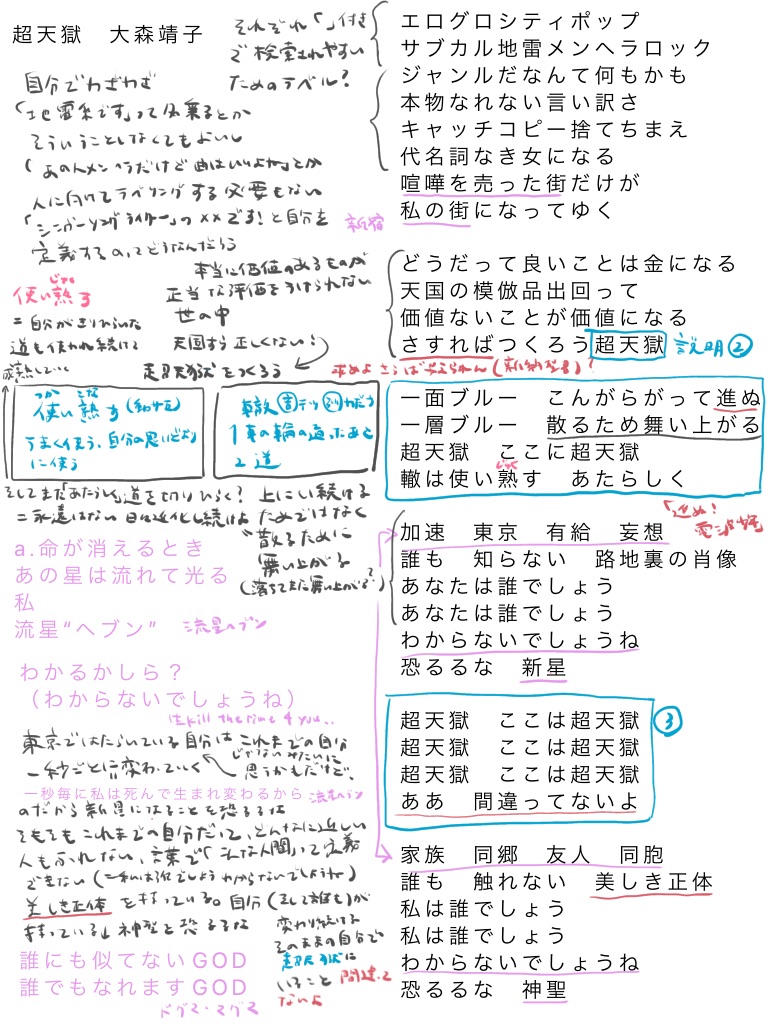 超天獄　大森靖子
それぞれ「」付き
で検索されやすい
ためのラベル？
自分でわざわざ
「地雷系です」って名乗るとか
そういうことしなくてもよいし
人に向けてラベリングする必要もない
「シンガーソングライター」の××です！と自分を
定義するのってどうなんだろう
エログロシティポップ
サブカル地雷メンヘラロック
ジャンルだなんて何もかも
本物なれない言い訳さ
キャッチコピー捨てちまえ
代名詞なき女になる
喧嘩を売った街だけが
私の街になってゆく
新宿
本当に価値のあるものが
正当な評価をうけられない
世の中
天国すら正しくない！
超天獄をつくろう
じゅく
使い熟す
＝自分がきりひらいた
道も使われ続ける
どうだって良いことは金になる
天国の模倣品出回って
価値ないことが価値になる
さすればつくろう超天獄
説明②
求めよさらば与えられん(新約聖書)？
つか　こな
使い熟す(和せる)
うまく使う、自分の思いどおり
に使う
車の輪の通ったあと
2 道
一面ブルー　こんがらがって進ぬ
一層ブルー　散るため舞い上がる
超天獄　ここに超天獄
じゅく
轍は使い熟す　あたらしく
「進ぬ！
電波少年」
そしてまた「あたらしく」道を切りひらく？
＝永遠はない 日々進化し続けよ
上にい続ける
ためではなく
“散るために
舞い上がる
(落ちてまた舞い上がる？)
a.命が消えるとき
あの星は流れて光る
私
流星“ヘブン”
流星ヘブン
加速　東京　有給　妄想
誰も　知らない　路地裏の肖像
あなたは誰でしょう
あなたは誰でしょう
わからないでしょうね
恐るるな　新星
わかるかしら？
（わからないでしょうね）
kill the time 4 you‥
東京ではたらいている自分は これまでの自分
じゃないみたいに
思うかもだけど、
一秒ごとに変わっていく
一秒毎に私は死んで生まれ変わるから 流星ヘブン
のだから新星になることを恐るるな
そもそもこれまでの自分だって、どんなに近しい
人もふれない、言葉で「こんな人間」って定義
できない(＝私は誰でしょうわからないでしょうね)
美しき正体 を持っている。自分(そして誰も)が
持っている↓神聖を恐るるな
超天獄　ここは超天獄
超天獄　ここは超天獄
超天獄　ここは超天獄
ああ　間違ってないよ
③
家族　同郷　友人　同胞
誰も　触れない　美しき正体
私は誰でしょう
私は誰でしょう
わからないでしょうね
恐るるな　神聖
変わり続ける
そのままの自分で
超天獄に
いること 間違って
ないよ
誰にも似てないGOD
誰でもなれますGOD
ドグマ・マグマ